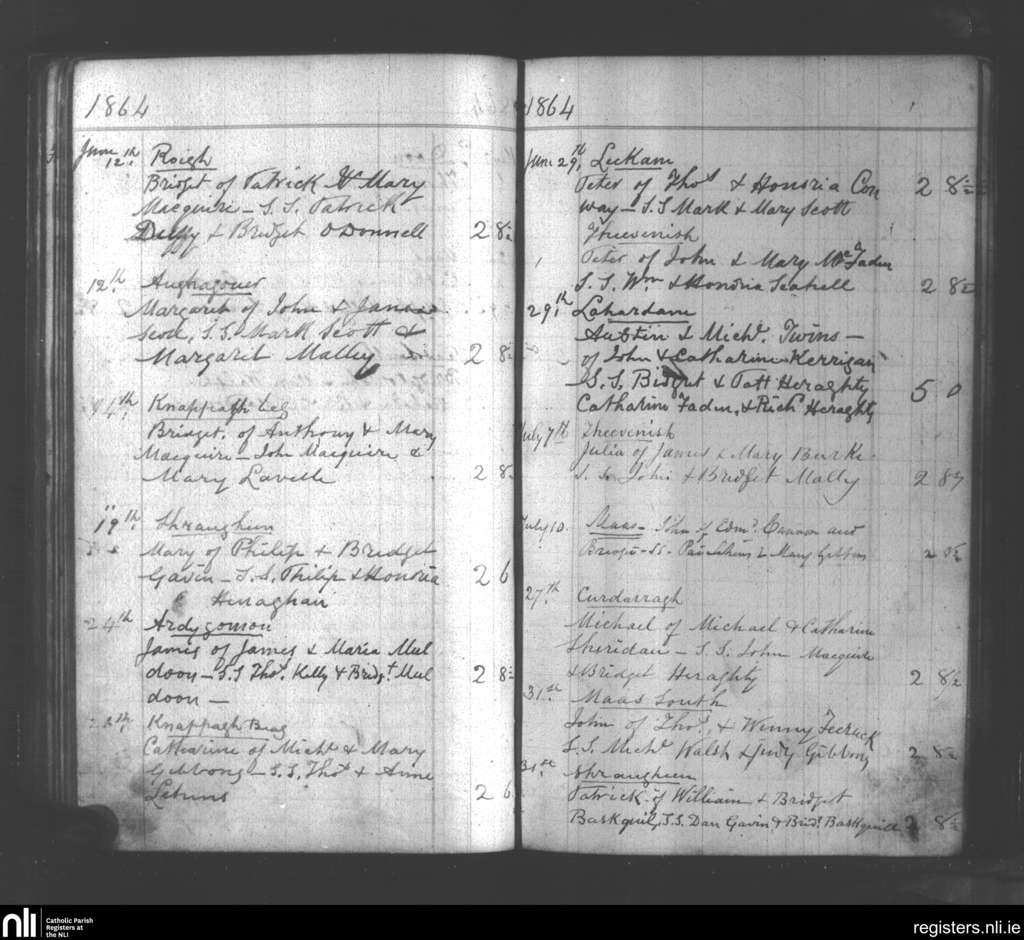 1864
June 12th Roigh
Bridget of Patrick & Mary
Macguire - S.S. Patrick
Duffy & Bridget O Donnell 2 6
12th Aughagower
Margaret of John & James
Scott, S.S. Mark Scott &
Margaret Malley 2 6
14th Knappagh beg
Bridget of Anthony & Mary
Macguire - John Macguire &
Mary Lavelle 2 6
19th Shraugheen
Mary of Philip & Bridget
Gavin - S.S. Philip & Honoria 2 6
Heraghan
24th Ardygomon
James of James & Maria Mul
doon - S.S Thos. Kelly & Bridgt. Mul 2 8
doon -
Knappagh Beag
Catharine of Michl & Mary
Gibbons - S.S. Thos & Anne
2 6
1864
June 29th Leckam
Peter of Thos & Honoria Con 2 8
way - S.S Mark & Mary Scott
Theevenish
Peter of John & Mary McFaden
S.S. Wm & Honoria 2 8
29th Lahardane
Austin & Michl. Twins -
of John & Catharine Kerrigan
S.S. Bidget & Patt Heraghty 5 0
Catharine Faden, & Rich Heraghty
July 7th Theevenish
Julia of James & Mary Burke
S.S. John & Bridget Mally 2 8
July 10 Maas - of Edmd. Cannon and
Bridget - & Mary Gibbons 2
27th Curdarragh
Michael of Michael & Catharine
Sheridan - S.S. John Macguire
& Bridget Heraghty 2 8
31st Maas South
John of Thos. & Winny Feerick
S.S. Michl Walsh & Judy Gibbons 2 8
31st Shraugheen
Patrick of William & Bridget
Baskquill, S.S. Dan Gavin & Bridt. Baskquill 2 8
nli Catholic Parish
Registers at
the NLI
registers.nli.ie